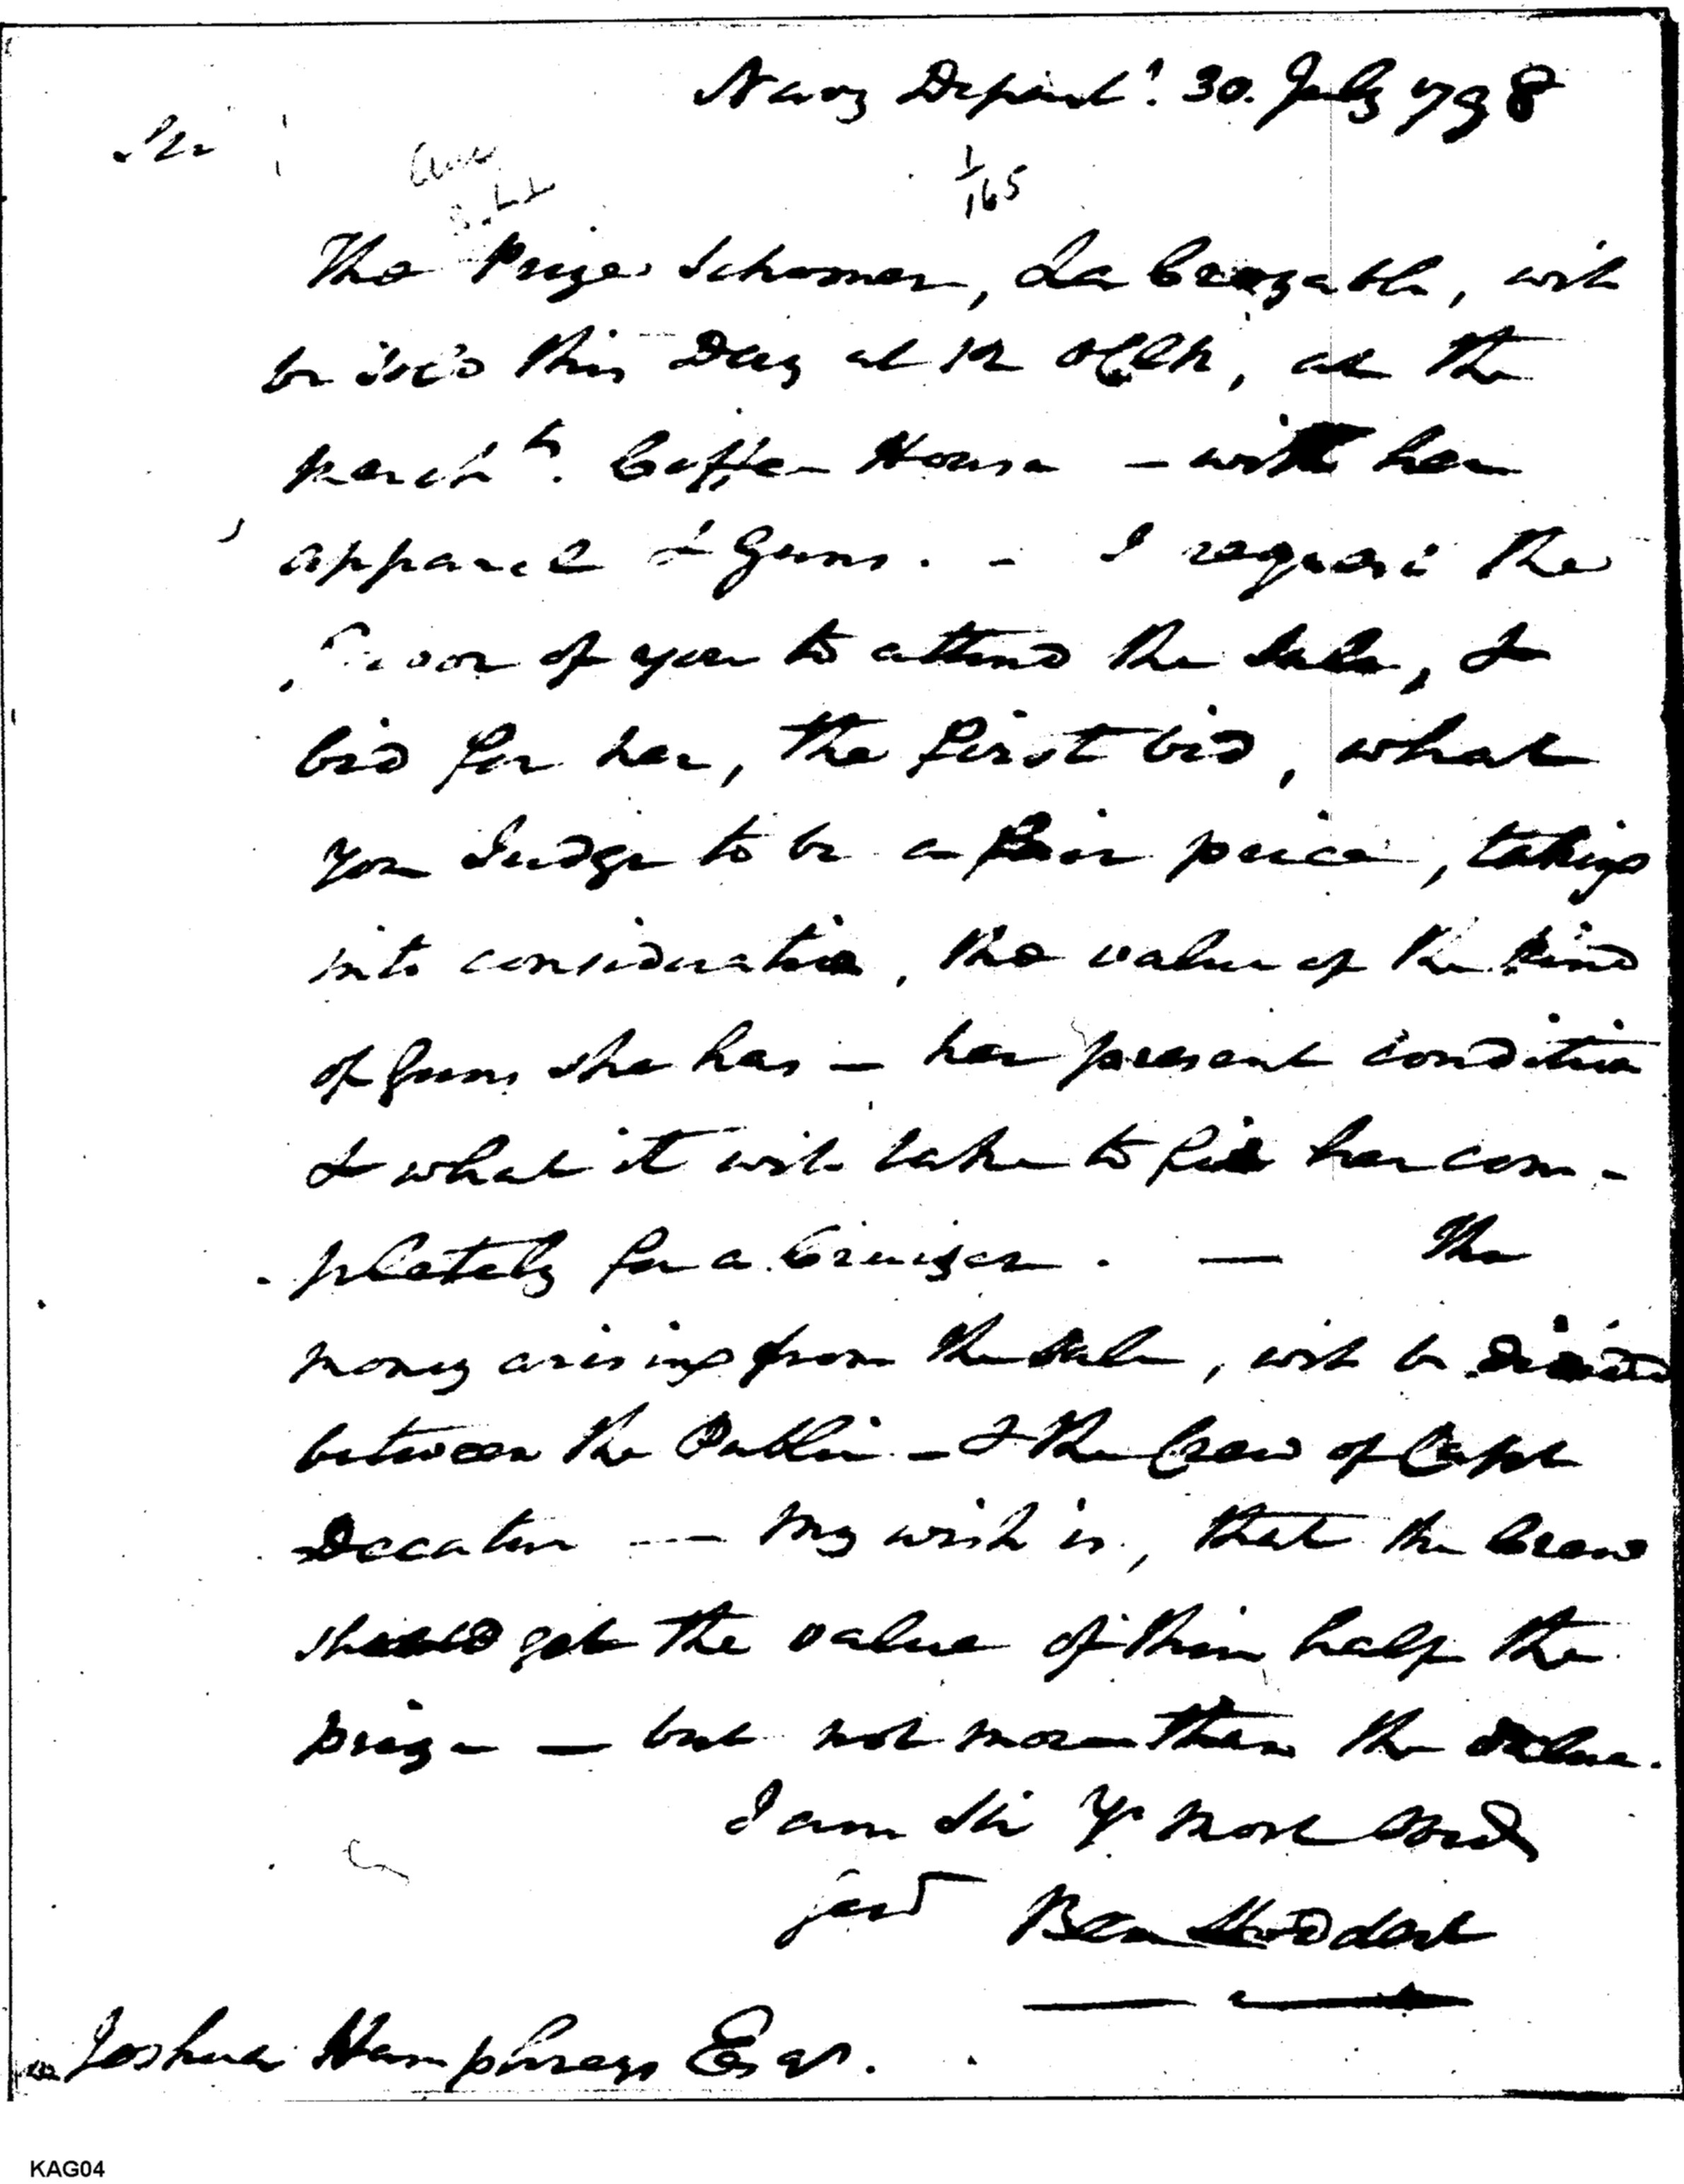 Navy Departt. 30. July 1798
Sir
1/165
The Prize Schooner, La Croyable, will
be sold this Day at 12 oClk, at the
March.ts Coffee House - with her
apparel & Guns. - I request the
favor of you to attend the sale, &
bid for her, the first bid, what
you Judge to be a fair price, taking
into consideration, the value of the kind
of Guns she has - her present condition
& what it will take to fit her com-
pletely for a Cruizer. — The
money arising from the sale, will be divided
between the Public - & the Crew of Capt
Decatur -- My wish is, that the Crew
should get the value of their half the
prize - but not more than the value.
I am Sir Yr most Obed
Serv Ben Stoddert
Joshua Humphreys Esqr.
KAG04